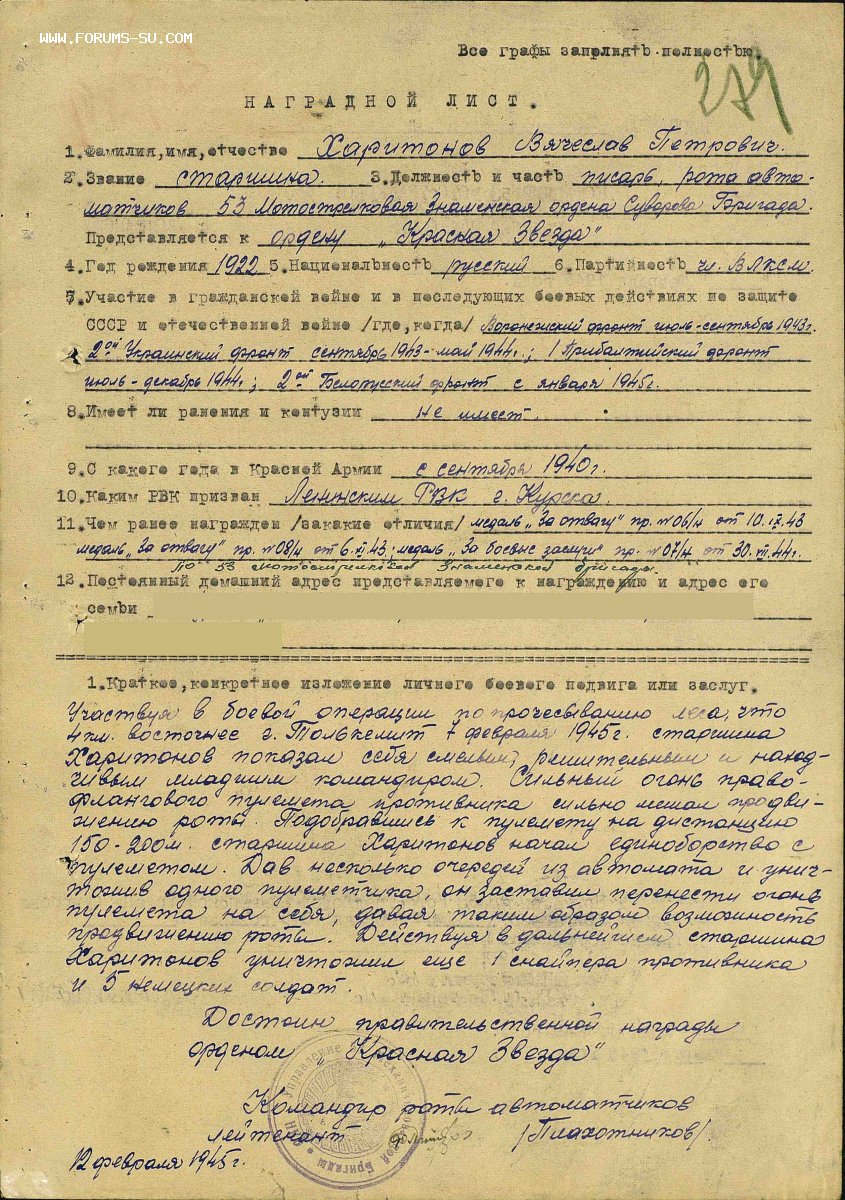 WWW.FORUMS-SU.COM
Все графы заполнять полностью.
279
НАГРАДНОЙ ЛИСТ.
1. Фамилия, имя, отчество Харитонов Вячеслав Петрович.
2. Звание старшина. 3. Должность и часть писарь, рота авто-
матчиков 53 Мотострелковая Знаменская ордена Суворова Бригада.
Представляется к ордену „Красная Звезда"
4. Год рождения 1922 5. Национальность русский 6. Партийность чл. ВЛКСМ.
7. Участие в гражданской войне и в последующих боевых действиях по защите
СССР и отечественной войне /где, когда/ Воронежский фронт июль-сентябрь 1943г.
2ой Украинский фронт сентябрь 1943-май 1944г.; 1 Прибалтийский фронт
июль-декабрь 1944г.; 2ой Белорусский фронт с января 1945г.
8. Имеет ли ранения и контузии не имеет.
9. С какого года в Красной Армии с сентября 1940г.
10. Каким РВК призван Ленинским РВК г. Курска.
11. Чем ранее награжден /закакие отличия/ медаль „За отвагу" пр. №06/н от 10.IX.43
медаль „За отвагу" пр. №08/н от 6.XI.43; медаль „За боевые заслуги" пр. №07/н от 30.VII.44г.
по 53 мотострелковой Знаменской бригады.
12. Постоянный домашний адрес представляемого к награждению и адрес его
семьи
1. Краткое, конкретное изложение личного боевого подвига или заслуг.
Участвуя в боевой операции по прочесыванию леса, что
4 км. восточнее г. Толькемит 7 февраля 1945г. старшина
Харитонов показал себя смелым, решительным и наход-
чивым младшим командиром. Сильный огонь право-
флангового пулемета противника сильно мешал продви-
жению роты. Подобравшись к пулемету на дистанцию
150-200м. старшина Харитонов начал единоборство с
пулеметом. Дав несколько очередей из автомата и унич-
тожив одного пулеметчика, он заставил перенести огонь
пулемета на себя, давая таким образом возможность
продвижению роты. Действуя в дальнейшем старшина
Харитонов уничтожил еще 1 снайпера противника
и 5 немецких солдат.
Достоин правительственной награды
орденом „Красная Звезда"
Командир роты автоматчиков
лейтенант /Плахотников/.
12 февраля 1945г.